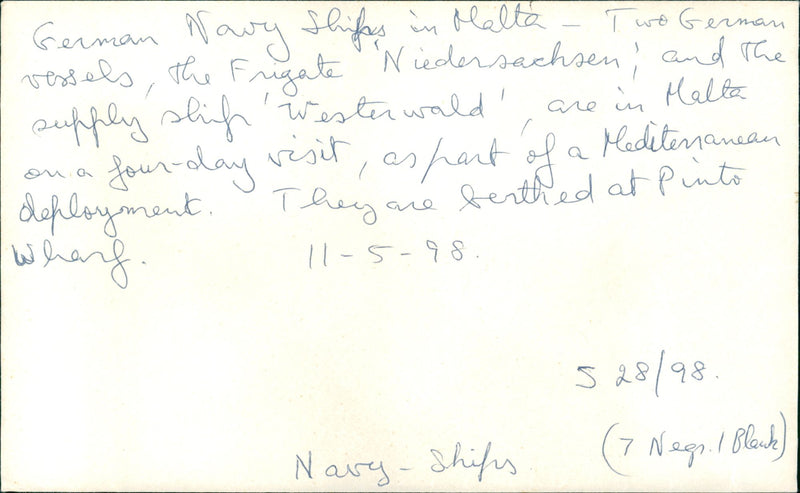 German Navy Ships in Malta - Two German
vessels, the Frigate 'Niedersachsen', and the
supply ship 'Westerwald', are in Malta
on a four-day visit, as part of a Mediterranean
deployment. They are berthed at Pinto
Wharf. 11-5-98.
S 28/98.
(7 Negs. 1 Blank)
Navy - Ships